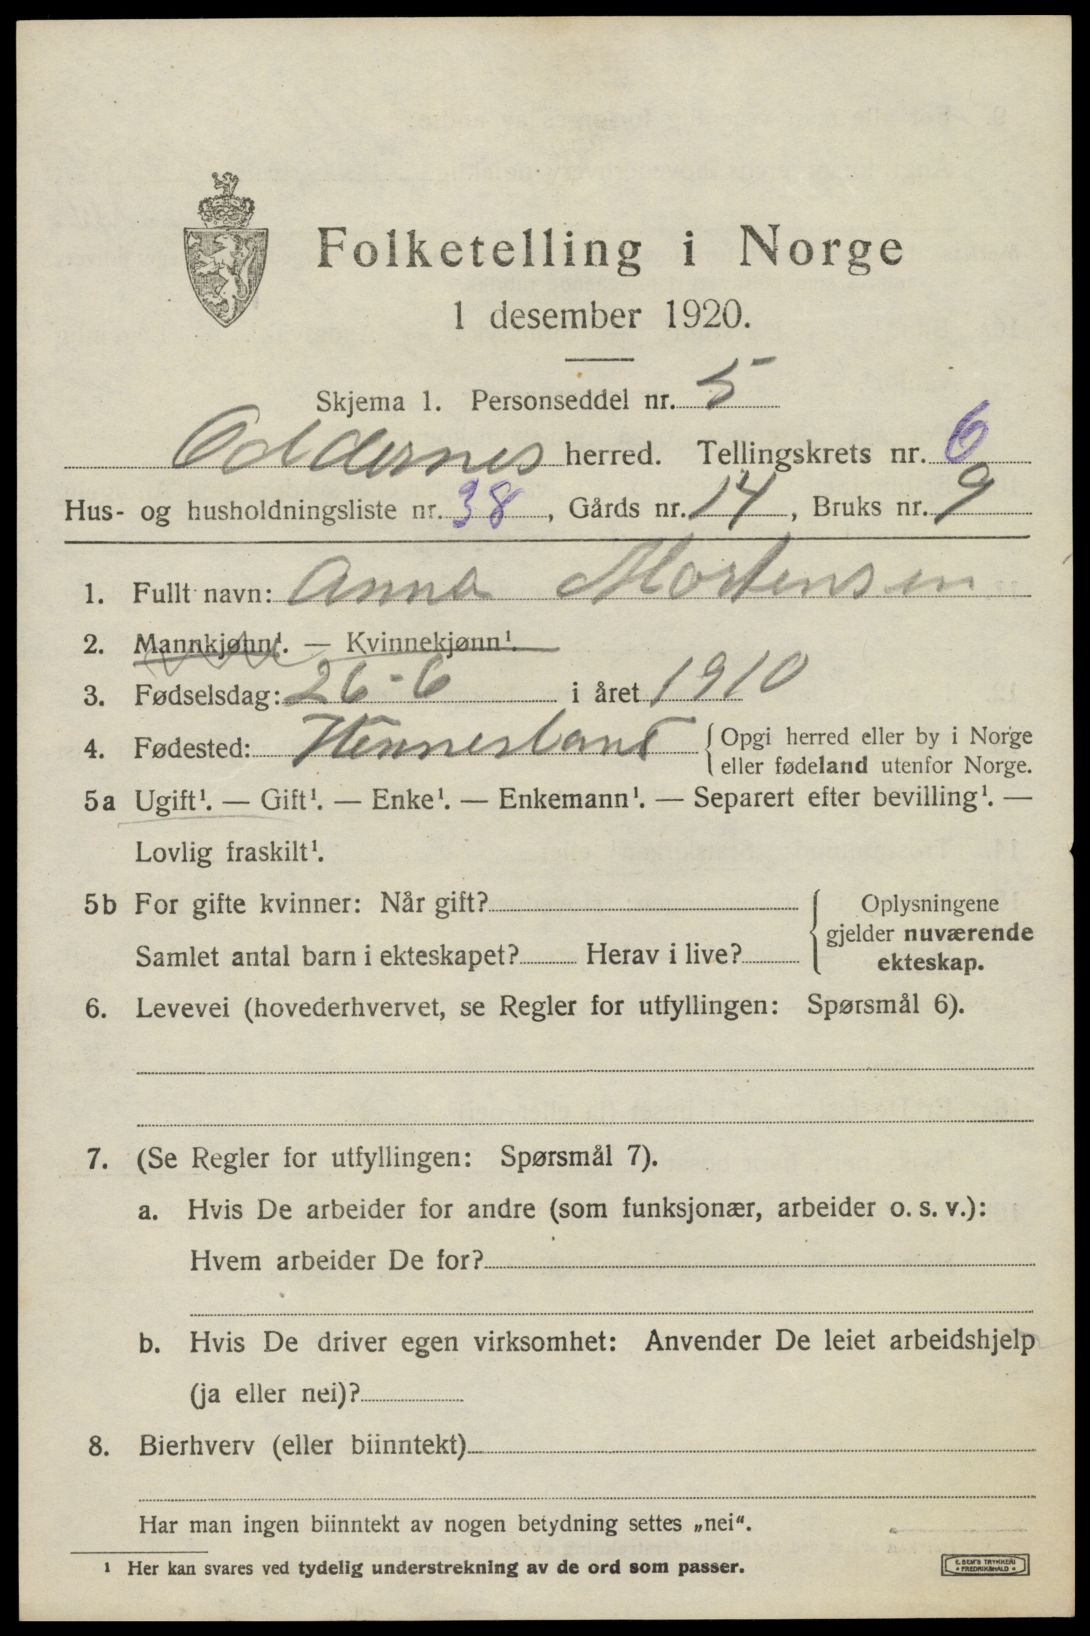 Folketelling i Norge
1 desember 1920.
Skjema 1. Personseddel nr. 5
Oddernes herred. Tellingskrets nr. 6
Hus- og husholdningsliste nr. 38, Gårds nr. 14, Bruks nr. 9
1. Fullt navn: Anna Mortensen
2. Mannkjønn¹. — Kvinnekjønn¹.
3. Fødselsdag: 26-6 i året 1910
4. Fødested: Hennesland { Opgi herred eller by i Norge
eller fødeland utenfor Norge.
5a Ugift¹. — Gift¹. — Enke¹. — Enkemann¹. — Separert efter bevilling¹. —
Lovlig fraskilt¹.
5b For gifte kvinner: Når gift?
Samlet antal barn i ekteskapet? Herav i live?
{ Oplysningene
gjelder nuværende
ekteskap.
6. Levevei (hovederhvervet, se Regler for utfyllingen: Spørsmål 6).
7. (Se Regler for utfyllingen: Spørsmål 7).
a. Hvis De arbeider for andre (som funksjonær, arbeider o. s. v.):
Hvem arbeider De for?
b. Hvis De driver egen virksomhet: Anvender De leiet arbeidshjelp
(ja eller nei)?
8. Bierhverv (eller biinntekt)
Har man ingen biinntekt av nogen betydning settes „nei“.
¹ Her kan svares ved tydelig understrekning av de ord som passer.
TRYKKERI
FREDRIKSHALD